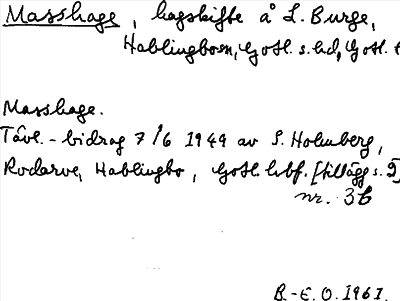 Masshage, hagskifte å L. Burge,
Hablingbo sn, Gotl. s. hd, Gotl. l
Masshage.
Tävl.-bidrag 7/6 1949 av S. Holmberg,
Rodarve, Hablingbo, Gotl. hbf. [tillägg s. 9]
nr. 36
B.-E. O. 1961.